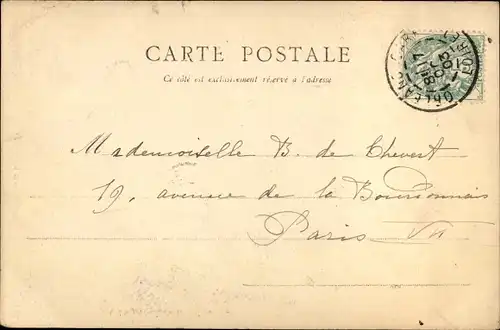 CARTE POSTALE
Ce côté est exclusivement réservé à l'adresse
Mademoiselle B. de Chevert
19, avenue de la Bourdonnais
Paris VII
ORLEANS GARE
LOIRET